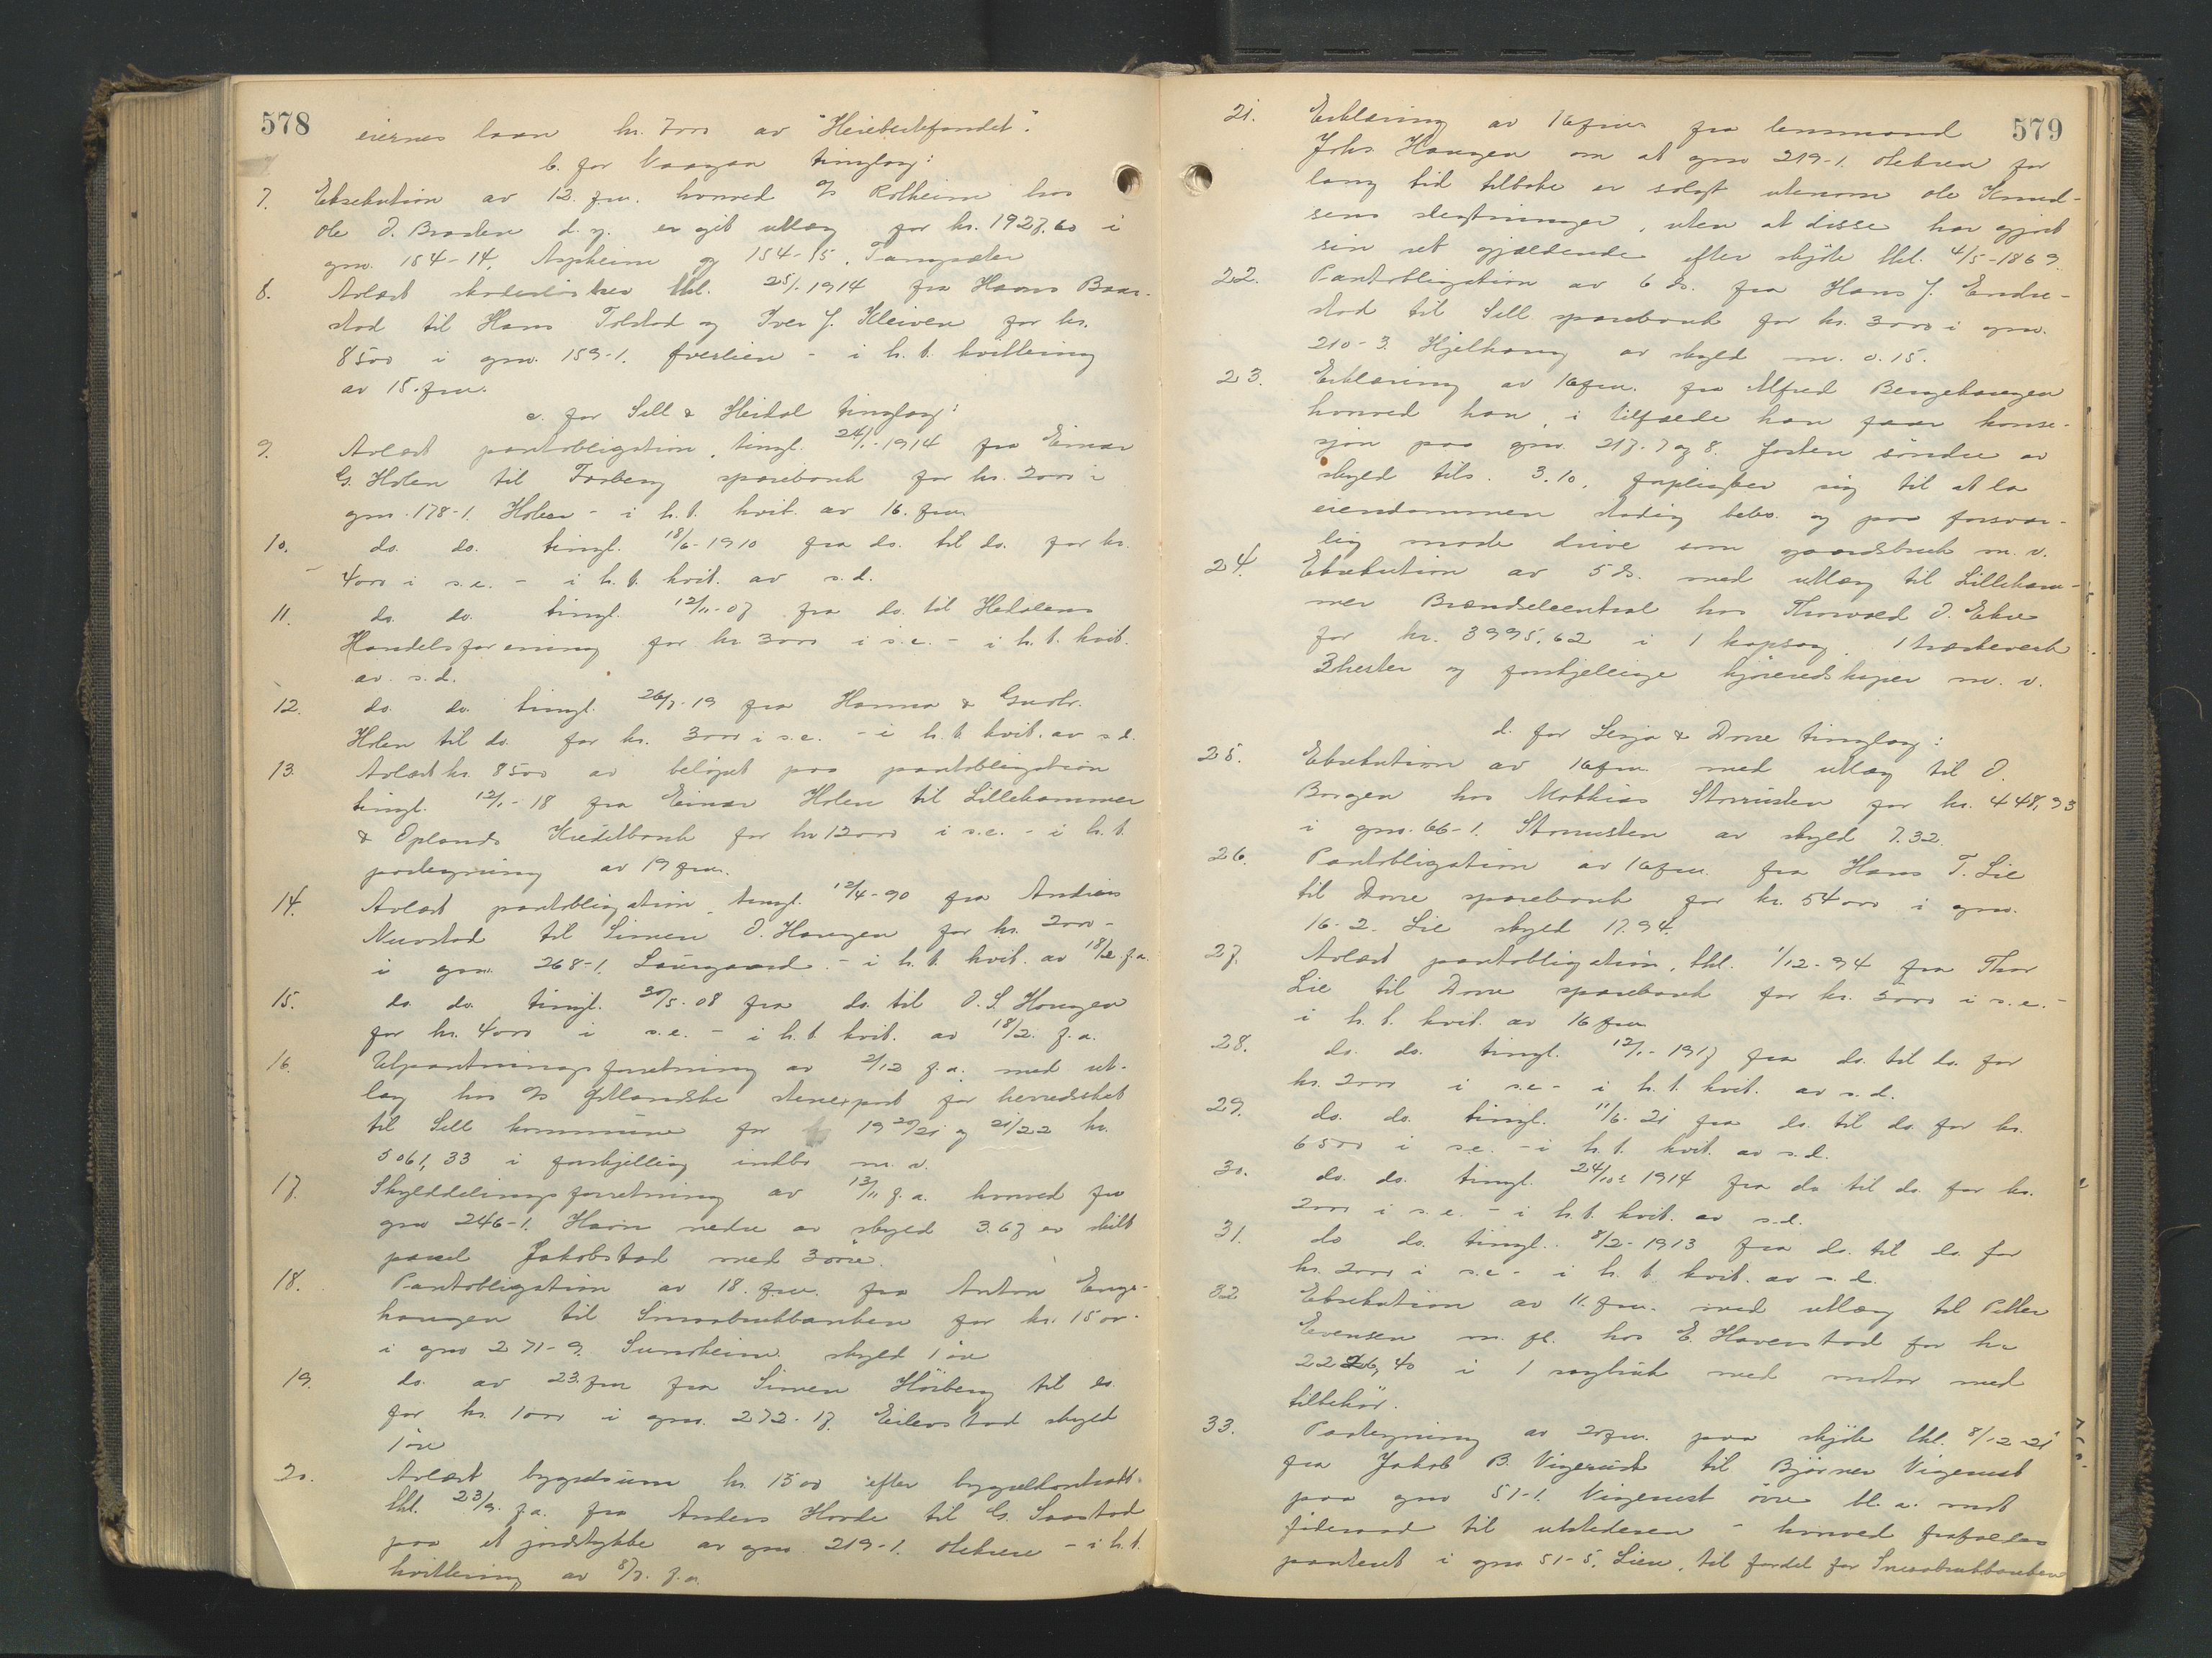 578
eiernes laan kr. 7000 av "Heiebestefondet".
b. for Vaagaa tinglag:
7. Eksekution av 12. f.m. hvorved A/S Rotheim hos
Ole O. Braaten d.y. er git utlæg for kr. 1927.60 i
gno. 154-14, Aspheim og 154-15,
8. Avlæst skadesløsbrev tkl. 25/1 1914 fra Hans Baar-
stad til Hans Tolstad og Iver J. Kleiven for kr.
8500 i gno. 159-1. - i h.t. kvittering
av 15. f.m.
c. for Sell & Heidal tinglag:
9. Avlæst pantobligation, tingl. 24/1-1914 fra Einar
G. Holen til Forberg sparebank for kr. 2000 i
gno. 178-1. Holen - i h.t. kvit. av 16. f.m.
10. do. do. tingl. 18/6-1910 fra do. til do. for kr.
4000 i s.e. - i h.t. kvit. av s.d.
11. do. do. tingl. 12/11-07 fra do. til Hedalens
Handelsforening for kr 3000 i s.e. - i h.t. kvit.
av s.d.
12. do. do. tingl. 26/7-19 fra Hanna & Gudbr.
Holen til do. for kr. 3000 i s.e. - i h.t. kvit. av s.d.
13. Avlæst kr. 8500 av beløpet paa pantobligation
tingl. 12/1-18 fra Einar Holen til Lillehammer
& Oplands Kreditbank for kr 12000 i s.e. - i h.t.
paategning av 19 f.m.
14. Avlæst pantobligation, tingl. 12/4-90 fra Andreas
Nurstad til Simen O. Haugen for kr. 2000-
i gno. 268-1. Laurgaard. - i h.t. kvit. av 18/2 f.a.
15. do. do. tingl. 30/5-08 fra do. til O.S. Haugen
for kr. 4000 i s.e. - i h.t. kvit. av 18/2. f.a.
16. Utpantningsforretning av 2/12 f.a. med ut-
læg hos A/S Østlandske stenexport for herredsskat
til Sell kommune for 1920/21 og 21/22 kr.
5061,33 i forskjellig indbo m.v.
17. Skylddelingsforretning av 13/11 f.a. hvorved fra
gno 246-1. Harn nedre av skyld 3.67 er skilt
parcel Jakobstad med 3 øre.
18. Pantobligation av 18. f.m. fra Anton Enge-
haugen til Smaabrukbanken for kr. 1500-
i gno 271-9. Sundheim skyld 1 øre
19. do. av 23. f.m. fra Simen Høiberg til do.
for kr. 1000 i gno. 272-17. Eilevstad skyld
1 øre
20. Avlæst bygselsum kr. 1500 efter bygselkontrakt
tkl. 23/9. f.a. fra Anders Horde til G. Saastad
paa et jordstykke av gno. 219-1. Olekren - i h.t.
kvittering av 8/7. f.a.
579
21. Erklæring av 16 f.m. fra lensmand
Johs. Haugen om at gno 219-1. Olekren for
lang tid tilbake er solgt utenom Ole Knud-
sens slegtninger, uten at disse har gjort
sin ret gjældende efter skjøte tkl. 4/5-1869.
22. Pantobligation av 6 ds. fra Hans J. Endre-
stad til Sell sparebank for kr. 3000 i gno.
210-3. Hjelhaug av skyld m. 0.15.
23. Erklæring av 16 f.m. fra Alfred Bergehaugen
hvorved han, i tilfælde han faar konse-
sjon paa gno. 217-7 og 8. Josten søndre av
skyld tils. 3.10, forpligter sig til at la
eiendommen stadig bebo og paa forsvar-
lig maate drive som gaardsbruk m.v.
24. Eksekution av 5 ds. med utlæg til Lilleham-
mer Brændselcentral hos Thorvald O. Ekre
for kr. 3995.62 i 1 kapsag, 1 træskeverk
3 hester og forskjellige kjøreredskaper m.v.
d. for Lesja & Dovre tinglag:
25. Eksekution av 16 f.m. med utlæg til O.
Borgen hos Mathias Storrusten for kr. 448,93
i gno. 66-1. Storrusten av skyld 7.32.
26. Pantobligation av 16 f.m. fra Hans T. Lie
til Dovre sparebank for kr. 54000 i gno.
16-2. Lie skyld 17.94.
27. Avlæst pantobligation, tkl. 1/12-94 fra Thor
Lie til Dovre sparebank for kr. 5000 i s.e.-
i h.t. kvit. av 16 f.m.
28. do. do. tingl. 12/1-1917 fra do. til do. for
kr. 2000 i s.e - i h.t. kvit. av s.d.
29. do. do. tingl. 11/6-21 fra do. til do. for kr.
6500 i s.e. - i h.t. kvit. av s.d.
30. do. do. tingl. 24/10-1914 fra do til do. for kr.
2000 i s.e. - i h.t. kvit. av s.d.
31. do do. tingl. 8/2-1913 fra do. til do. for
kr. 2000 i s.e - i h.t. kvit. av s.d.
32 Eksekution av 11. f.m. med utlæg til Petter
Evensen m.fl. hos E. Haverstad for kr
2226,40 i 1 sagbruk med motor med
tilbehør.
33. Paategning av 20 f.m. paa skjøte tkl. 8/12-21
fra Jakob B. Vigerust til Bjørner Vigerust
paa gno 51-1. Vigerust øvre bl.a. mot
føderaad til utstederen - hvorved frafaldes
panteret i gno 51-5. Lien, til fordel for Smaabrukbanken